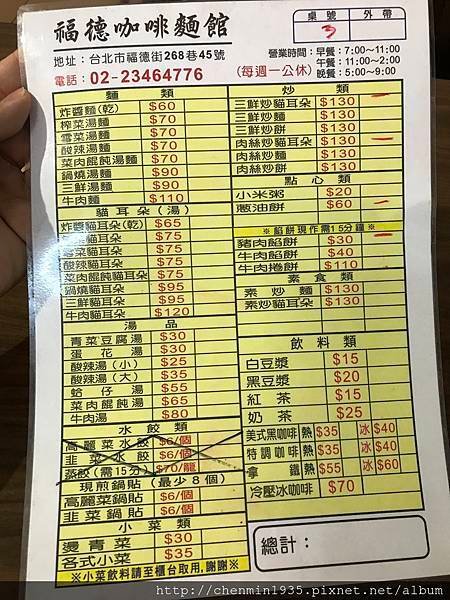 福德咖啡麵館
桌號 外帶
3
地址：台北市福德街268巷45號
電話：02-23464776
(每週一公休)
營業時間：早餐：7:00～11:00
午餐：11:00～2:00
晚餐：5:00～9:00
麵類
炸醬麵(乾) $60
榨菜湯麵 $70
雪菜湯麵 $70
酸辣湯麵 $70
菜肉餛飩湯麵 $70
鍋燒湯麵 $90
三鮮湯麵 $90
牛肉麵 $110
貓耳朵(湯)
炸醬貓耳朵(乾) $65
貓耳朵 $75
雪菜貓耳朵 $75
酸辣貓耳朵 $75
菜肉餛飩貓耳朵 $75
鍋燒貓耳朵 $95
三鮮貓耳朵 $95
牛肉貓耳朵 $120
湯品
青菜豆腐湯 $30
蛋花湯 $30
酸辣湯(小) $25
酸辣湯(大) $35
蛤仔湯 $55
菜肉餛飩湯 $65
牛肉湯 $80
水餃類
高麗菜水餃 $6/個
韭菜水餃 $6/個
蒸餃(需15分) $70/籠
現煎鍋貼(最少8個)
高麗菜鍋貼 $6/個
韭菜鍋貼 $6/個
小菜類
燙青菜 $30
各式小菜 $35
※小菜飲料請至櫃台取用,謝謝※
炒類
三鮮炒貓耳朵 $130
三鮮炒麵 $130
三鮮炒餅 $130
肉絲炒貓耳朵 $130
肉絲炒麵 $130
肉絲炒餅 $130
點心類
小米粥 $20
蔥油餅 $60
※餡餅現作需15分鐘※
豬肉餡餅 $30
牛肉餡餅 $40
牛肉捲餅 $110
素食類
素炒麵 $130
素炒貓耳朵 $130
飲料類
白豆漿 $15
黑豆漿 $20
紅茶 $15
奶茶 $25
美式黑咖啡 熱 $35 冰 $40
特調咖啡 熱 $35 冰 $40
拿鐵 熱 $55 冰 $60
冷壓冰咖啡 $70
總計：
http://chenmin1935.pixnet.net/album